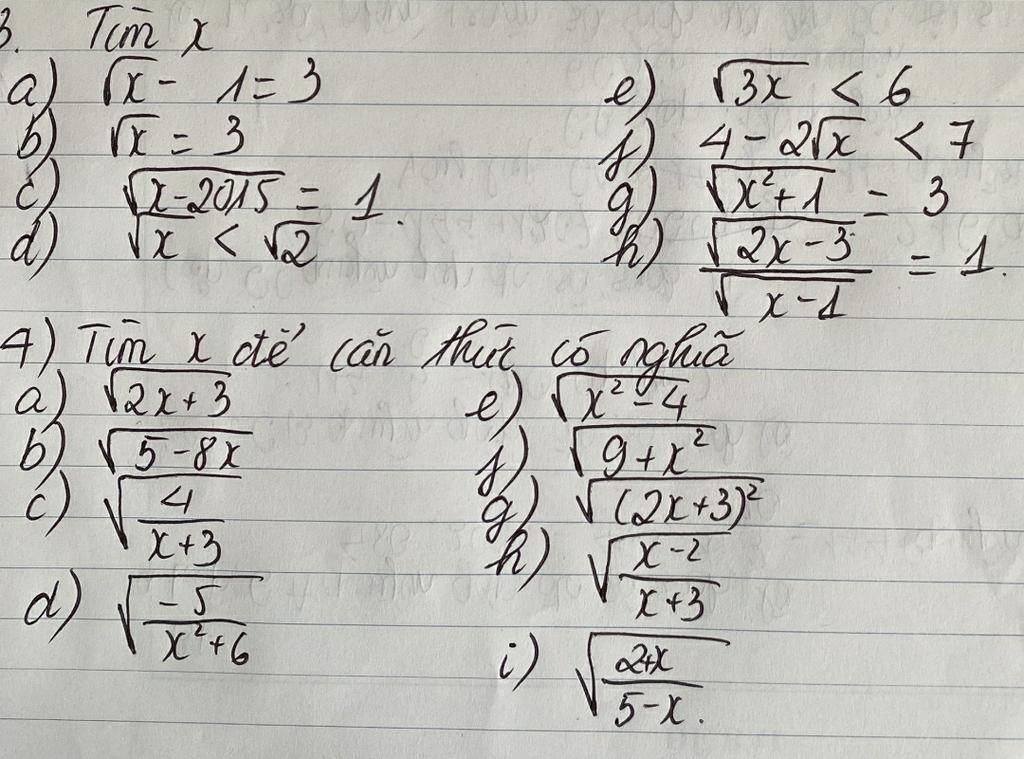 3. Tìm x
a) √x - 1 = 3
b) √x = 3
c) √(x-2015) = 1.
d) √x < √2
e) √(3x) < 6
f) 4 - 2√x < 7
g) √(x²+1) = 3
h) √(2x-3)/√(x-1) = 1.
4) Tìm x để căn thức có nghĩa
a) √(2x+3)
b) √(5-8x)
c) √(4/(x+3))
d) √(-5/(x²+6))
e) √(x²-4)
f) √(9+x²)
g) √((2x+3)²)
h) √((x-2)/(x+3))
i) √((2+x)/(5-x)).